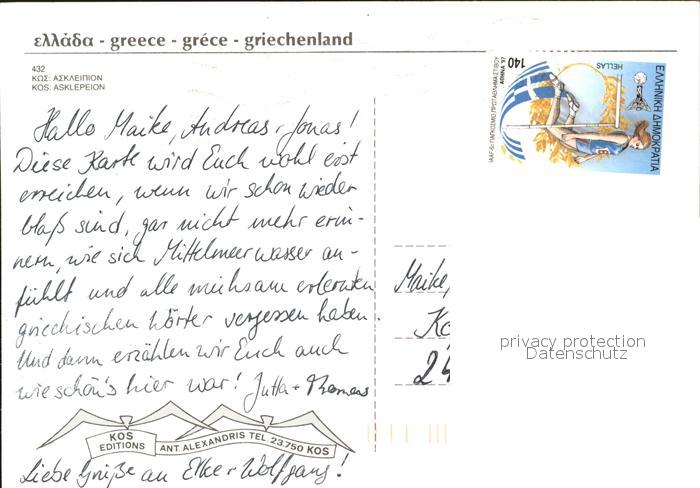 ελλάδα - greece - gréce - griechenland
432
ΚΩΣ: ΑΣΚΛΕΙΠΙΟΝ
KOS: ASKLEPEION
Hallo Maike, Andreas + Jonas!
Diese Karte wird Euch wohl erst
erreichen, wenn wir schon wieder
blaß sind, gar nicht mehr erin-
nern, wie sich Mittelmeerwasser an-
fühlt und alle mühsam erlernten
griechischen Wörter vergessen haben.
Und dann erzählen wir Euch auch
wie schön's hier war! Jutta + Thomas
KOS
EDITIONS
ANT. ALEXANDRIS TEL. 23.750 KOS
Liebe Grüße an Elke + Wolfgang!
ΕΛΛΗΝΙΚΗ ΔΗΜΟΚΡΑΤΙΑ
HELLAS
140
IAAF-6ο ΠΑΓΚΟΣΜΙΟ ΠΡΩΤΑΘΛΗΜΑ ΣΤΙΒΟΥ
ΑΘΗΝΑ '97
Maike,
24
privacy protection
Datenschutz